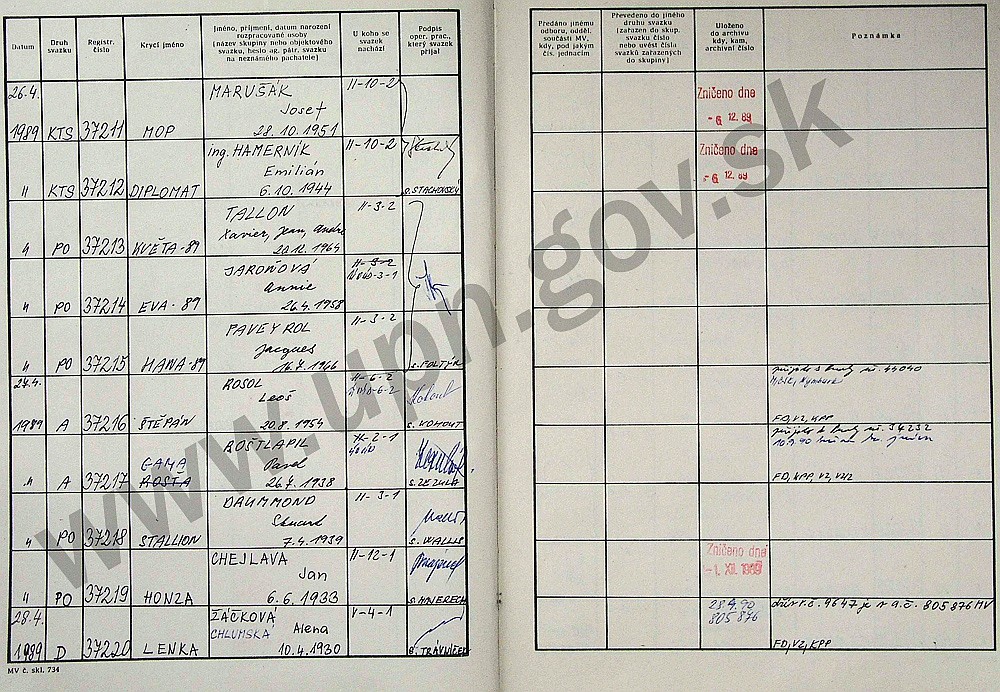 Datum
Druh svazku
Registr. číslo
Krycí jméno
Jméno, příjmení, datum narození
rozpracované osoby
(název skupiny nebo objektového
svazku, heslo ag. pátr. svazku
na neznámého pachatele)
U koho se svazek nachází
Podpis oper. prac., který svazek přijal
Předáno jinému
odboru, odděl.
součásti MV,
kdy, pod jakým
čís. jednacím
Převedeno do jiného
druhu svazku
(zařazen do skup.
svazku číslo
nebo uvést čísla
svazků zařazených
do skupiny)
Uloženo
do archivu
kdy, kam,
archivní číslo
Poznámka
26.4. MARUŠÁK II-10-2 Zničeno dne
Josef -6. 12. 89
1989 KTS 37211 MOP 28.10.1951
ing. HAMERNÍK II-10-2 Zničeno dne
Emilián -6. 12. 89
II KTS 37212 DIPLOMAT 6.10.1944 s. STACHOVSKÝ
TALLON II-3-2
Xavier, Jean, André
II PO 37213 KVĚTA-89 20.12.1964
JAROŇOVÁ II-3-2
Annie
II PO 37214 EVA-89 26.4.1958
PAVEYROL II-3-2
Jacques
II PO 37215 HANA-89 16.7.1946 s. FOLTÝN
27.4. ROSOL II-6-2
Leoš
1989 A 37216 ŠTĚPÁN 20.8.1954 s. KOHOUT FO, VZ, KPP
ROŠTLAPIL II-2-1
GAMA Pavel
II A 37217 ROSTA 26.7.1938 s. ZEZULA FO, KPP, VZ, VHZ
DRUMMOND II-3-1
Stuart
II PO 37218 STALLION 7.4.1939 s. WALLIS
CHEJLAVA II-12-1 Zničeno dne
Jan -1. XII. 1989
II PO 37219 HONZA 6.6.1933
28.4. ŽÁČKOVÁ V-4-1 28.4.90 dřív r.č. 9647 je v a.č. 805876 MV
CHLUMSKÁ Alena 805 876
1989 D 37220 LENKA 10.4.1930 s. TRÁVNÍČEK FO, VZ, KPP
MV č. skl. 734
www.upn.gov.sk